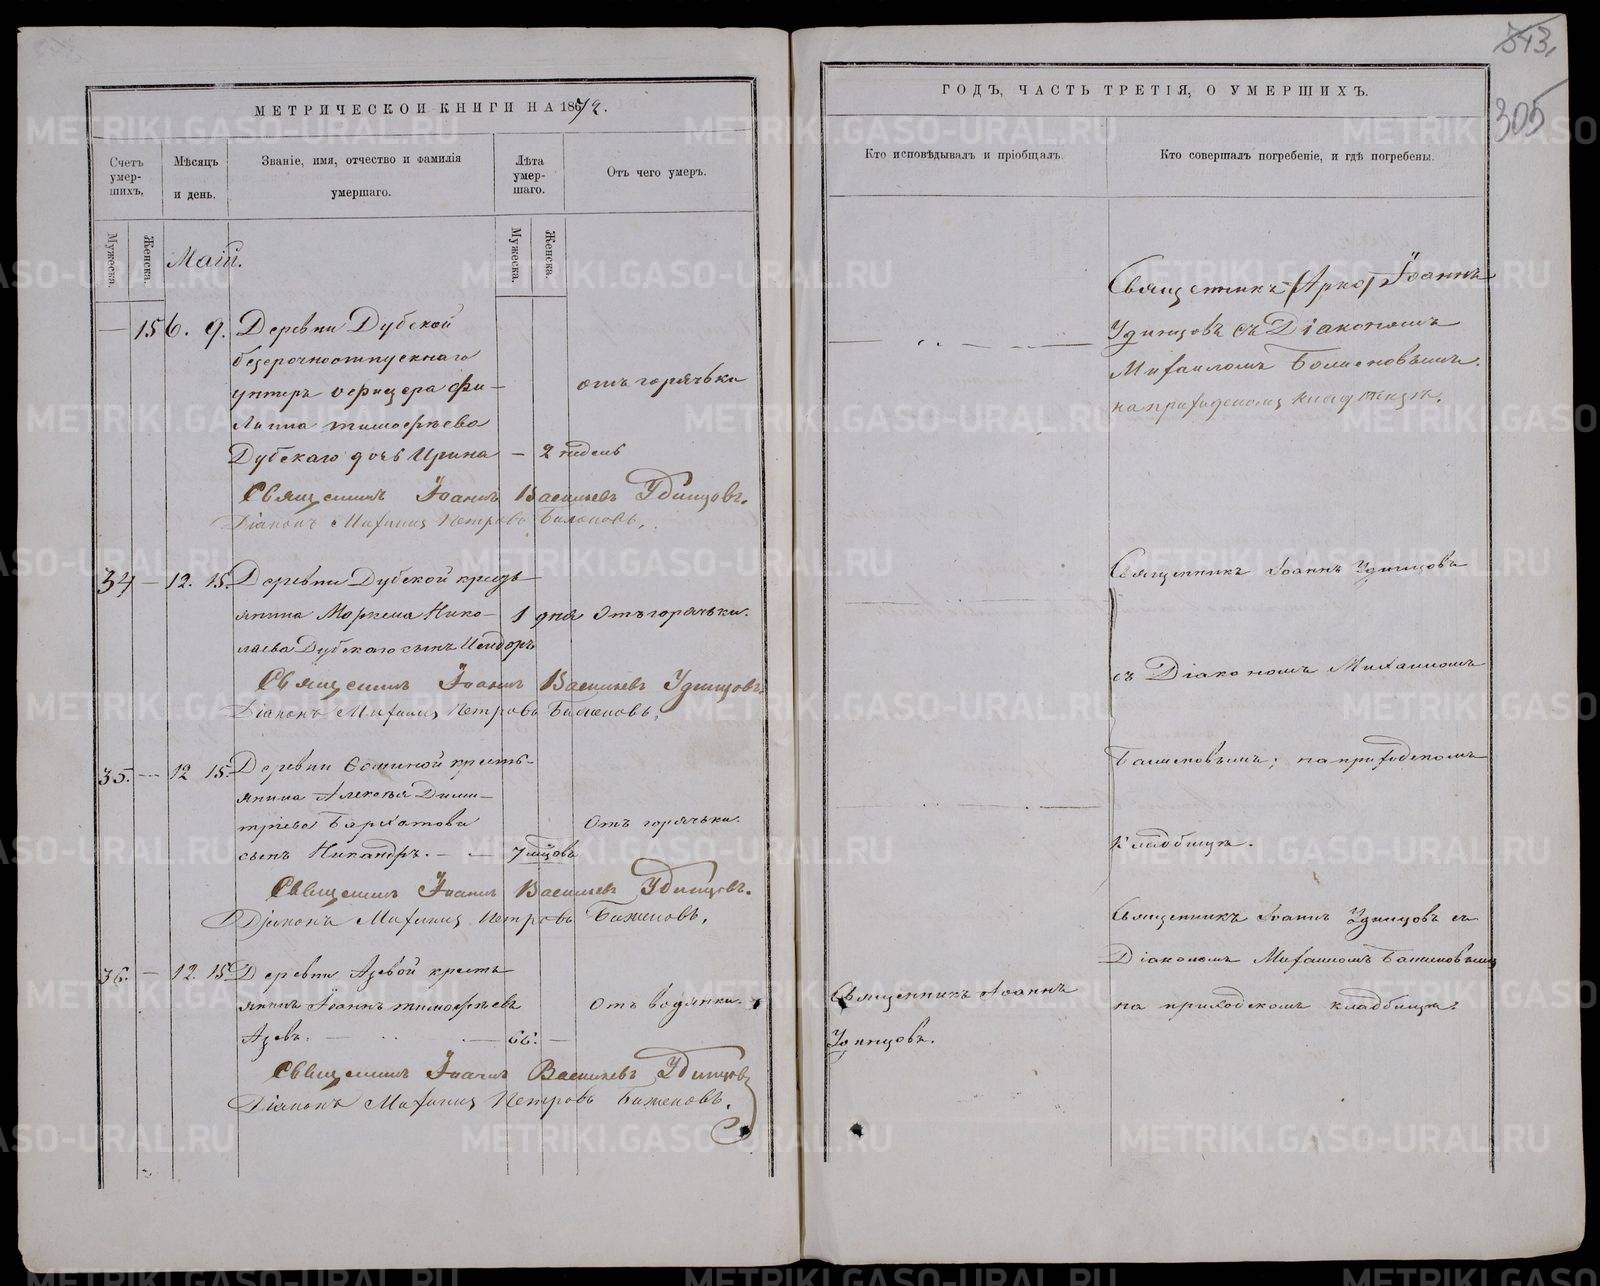 МЕТРИЧЕСКОЙ КНИГИ НА 1872.
Счетъ умер-шихъ.
Мѣсяцъ и день.
Званіе, имя, отчество и фамилія умершаго.
Лѣта умер-шаго.
Отъ чего умеръ.
Мужеска.
Женска.
Мужеска.
Женска.
Маій.
— 15 6. 9. Деревни Дубской
безсрочноотпускнаго
унтеръ офицера Фи-
липпа Тимофѣева
отъ горячьки
Дубскаго дочь Ирина — 2 недель
Священникъ Іоаннъ Васильевъ Удинцовъ.
Діаконъ Михаилъ Петровъ Баженовъ.
34 — 12. 15. Деревни Дубской кресть
янина Николаева
1 дня Отъ горячьки.
Дубскаго сынъ Исидоръ
Священникъ Іоаннъ Васильевъ Удинцовъ.
Діаконъ Михаилъ Петровъ Баженовъ.
35. — 12 15. Деревни кресть-
янина Алексѣя Дими-
тріева Бархатова
Отъ горячьки.
сынъ Никандръ. — 7 мѣсцовъ
Священникъ Іоаннъ Васильевъ Удинцовъ.
Діаконъ Михаилъ Петровъ Баженовъ.
36. — 12. 15 Деревни Азевой кресть
янинъ Іоаннъ Тимофѣевъ
Отъ водянки.
Азевъ. — 66. —
Священникъ Іоаннъ Васильевъ Удинцовъ
Діаконъ Михаилъ Петровъ Баженовъ.
343.
305
ГОДЪ, ЧАСТЬ ТРЕТІЯ, О УМЕРШИХЪ.
Кто исповѣдывалъ и пріобщалъ.
Кто совершалъ погребеніе, и гдѣ погребены.
Священникъ Іоаннъ
Удинцовъ съ Діакономъ
Михаиломъ Баженовымъ.
на приходскомъ кладбищѣ.
Священникъ Іоаннъ Удинцовъ
съ Діакономъ Михаиломъ
Баженовымъ; на приходскомъ
кладбищѣ.
Священникъ Іоаннъ Удинцовъ съ
Діакономъ Михаиломъ Баженовымъ
на приходскомъ кладбищѣ.
Священникъ Іоаннъ
Удинцовъ.
METRIKI.GASO-URAL.RU